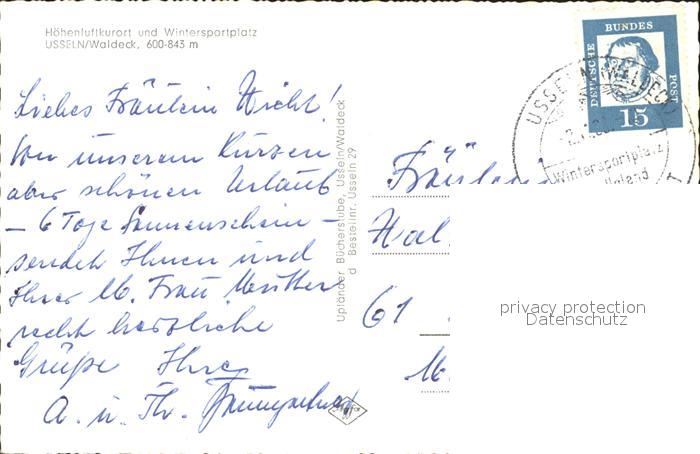 Höhenluftkurort und Wintersportplatz
USSELN/Waldeck, 600-843 m
Liebes Fräulein Hicht!
Von unserem kurzen
aber schönen Urlaub
– 6 Tage Sonnenschein –
sendet Ihnen und
Ihrer lb. Frau Mutter
recht herzliche
Grüße Ihre
A. u. Th. Baumgartner
Upländer Bücherstube, Usseln/Waldeck
d Bestellnr. Usseln 29
DEUTSCHE BUNDES POST
15
USSELN (WALDECK)
Wintersportplatz
Upland
Fräulein
Hal
61
privacy protection
Datenschutz